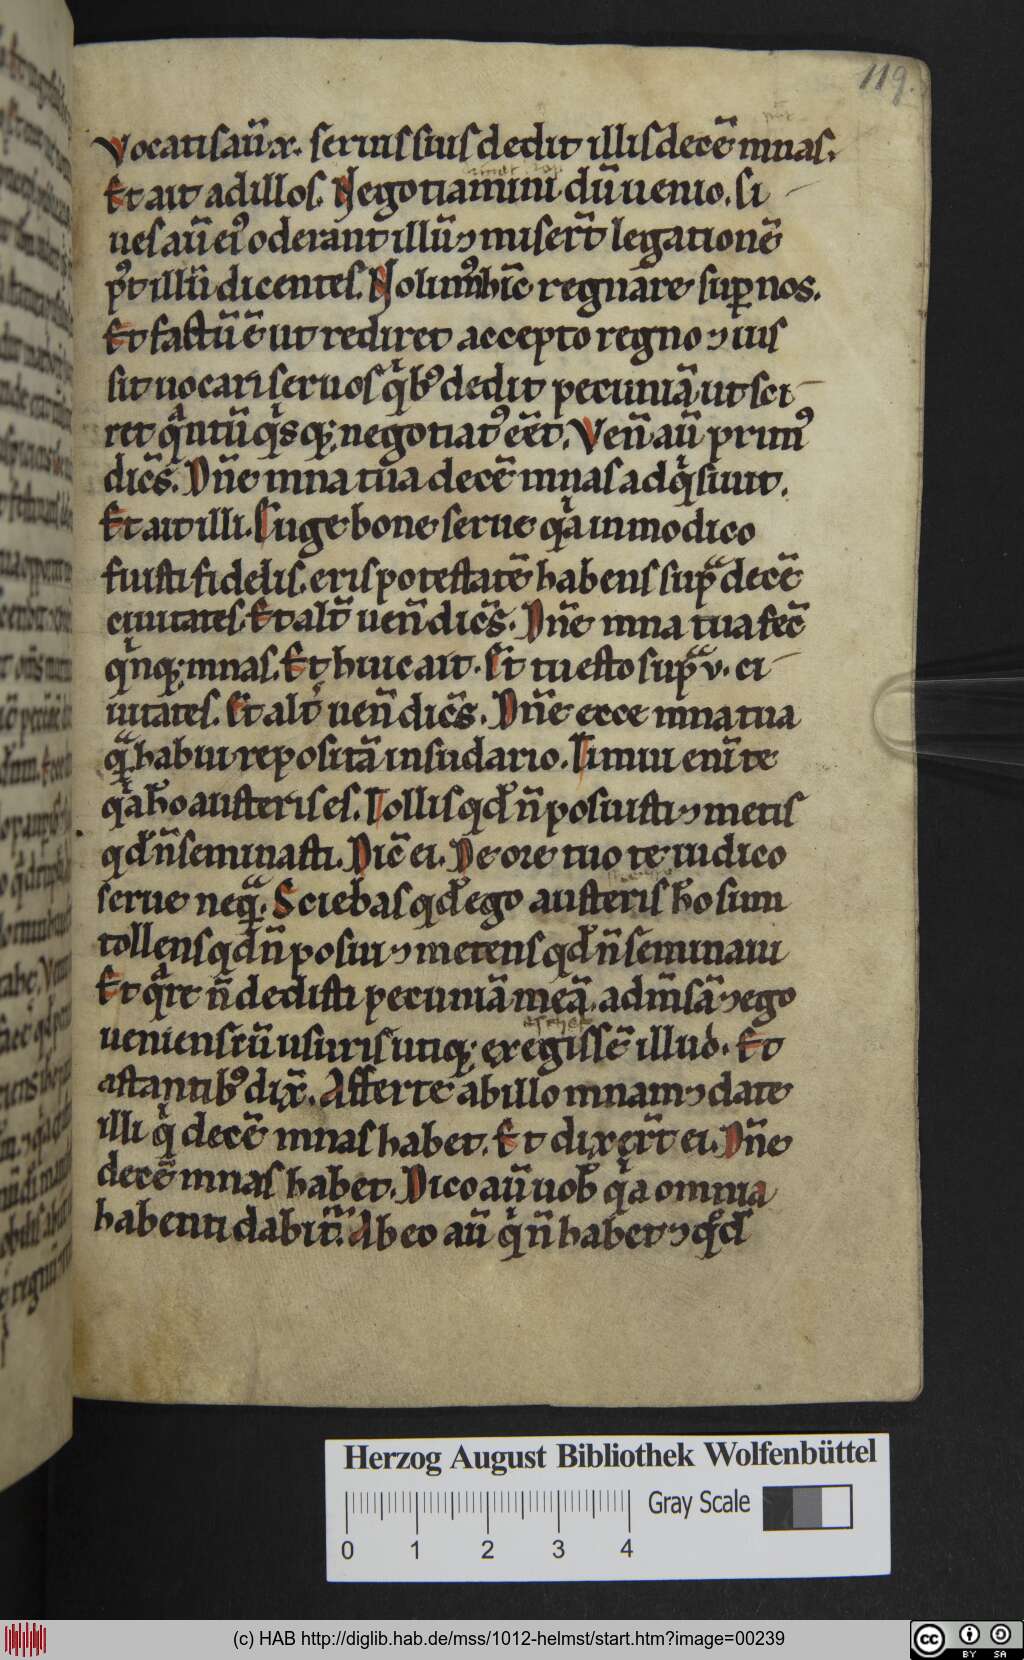 119.
Vocatis aū .x. seruis suis dedit illis decē mnas.
Et ait ad illos. Negotiamini dū uenio. Ci
ues aū eiꝰ oderant illū ⁊ miserт̄ legationē
pꝰt illū dicentes. Nolumꝰ hūc regnare suꝑ nos.
Et factū ē ut rediret accepto regno ⁊ ius
sit uocari seruos qͥbꝰ dedit pecuniā ut sci
ret qͣntū qͥsqꝫ negotiatꝰ eēt. Uen̄ aū primꝰ
dic̄s. Dn̄e mna tua decē mnas adqͥsiuit.
Et ait illi. Euge bone serue qͥa in modico
fuisti fidelis. eris potestatē habens supͣ decē
ciuitates. Et alt̄ uen̄ dic̄s. Dn̄e mna tua fec̄
qͥnqꝫ mnas. Et huic ait. Et tu esto supͣ .v. ci
uitates. Et alt̄ uen̄ dic̄s. Dn̄e ecce mna tua
qͣ̄ habui repositā in sudario. Timui eni̅ te
qͥa ho austeris es. Tollis qd̄ n̄ posuisti ⁊ metis
qd̄ n̄ seminasti. Dic̄ ei. De ore tuo te iudico
serue neqͣ. Sciebas qd̄ ego austeris ho sum
tollens qd̄ n̄ posui ⁊ metens qd̄ n̄ seminaui
Et qͣre n̄ dedisti pecuniā meā ad m̄sā ⁊ ego
ueniens cū usuris utiqꝫ exegissē illud. Et
astantibꝰ dix̄. Afferte ab illo mnam ⁊ date
illi qͥ decē mnas habet. Et dixer̄t ei. Dn̄e
decē mnas habet. Dico aū uob̄ qͥa omnia
habenti dabit̄. Ab eo aū qͥ n̄ habet ⁊ qͦd
Herzog August Bibliothek Wolfenbüttel
Gray Scale
0 1 2 3 4
(c) HAB http://diglib.hab.de/mss/1012-helmst/start.htm?image=00239
cc BY SA